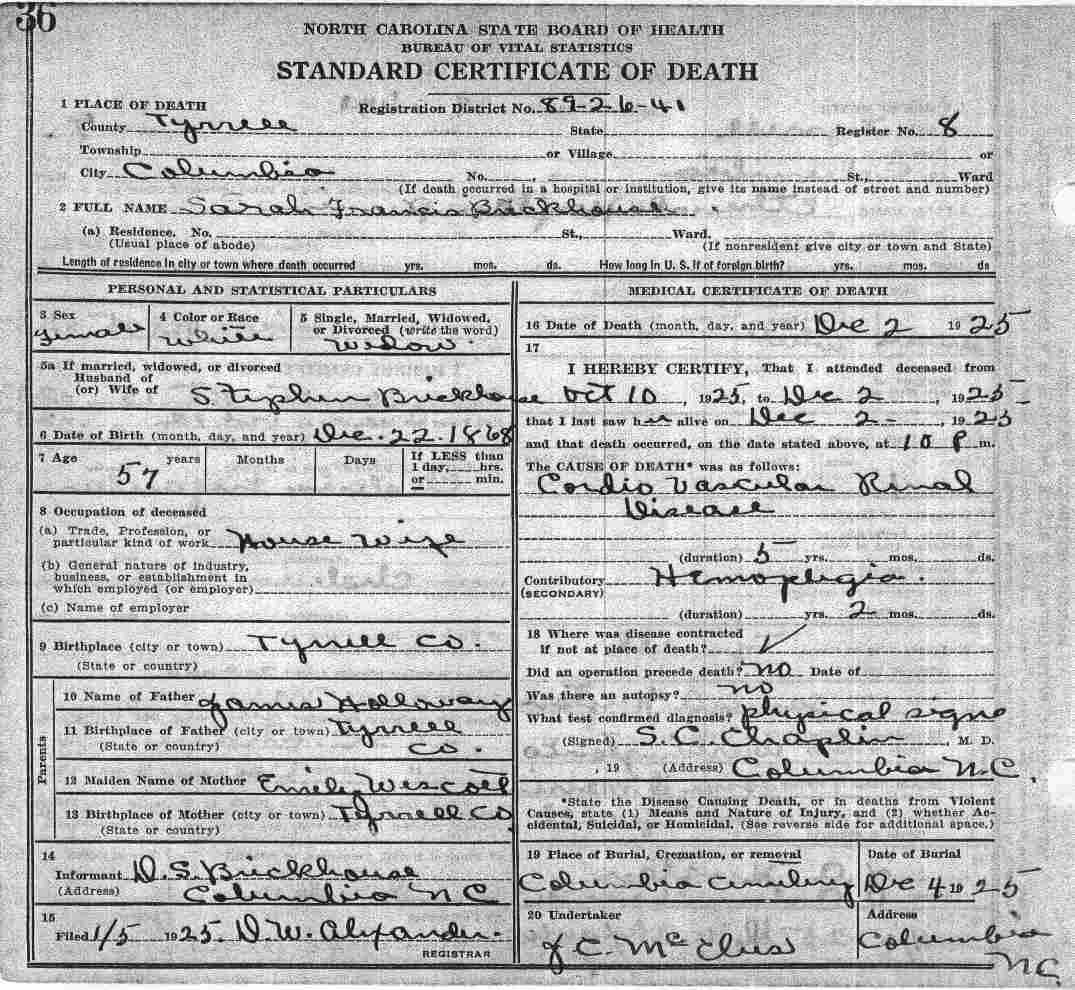 36
NORTH CAROLINA STATE BOARD OF HEALTH
BUREAU OF VITAL STATISTICS
STANDARD CERTIFICATE OF DEATH
1 PLACE OF DEATH Registration District No. 89-26-41
County Tyrrell State Register No. 8
Township or Village or
City Columbia No. , St., Ward
(If death occurred in a hospital or institution, give its name instead of street and number)
2 FULL NAME Sarah Francis Brickhouse
(a) Residence. No. St., Ward.
(Usual place of abode) (If nonresident give city or town and State)
Length of residence in city or town where death occurred yrs. mos. ds. How long in U. S. if of foreign birth? yrs. mos. ds
PERSONAL AND STATISTICAL PARTICULARS
3 Sex 4 Color or Race 5 Single, Married, Widowed, or Divorced (write the word)
Female White Widow
5a If married, widowed, or divorced
Husband of
(or) Wife of Stephen Brickhouse
6 Date of Birth (month, day, and year) Dec. 22. 1868
7 Age years Months Days If LESS than
1 day, hrs.
or min.
57
8 Occupation of deceased
(a) Trade, Profession, or
particular kind of work House Wife
(b) General nature of industry,
business, or establishment in
which employed (or employer)
(c) Name of employer
9 Birthplace (city or town) Tyrrell Co.
(State or country)
Parents
10 Name of Father James Holloway
11 Birthplace of Father (city or town) Tyrrell
(State or country) Co.
12 Maiden Name of Mother Emily Wescott
13 Birthplace of Mother (city or town) Tyrrell Co
(State or country)
14
Informant D. S. Brickhouse
(Address) Columbia NC
15
Filed 1/5 1925. D. W. Alexander.
REGISTRAR
MEDICAL CERTIFICATE OF DEATH
16 Date of Death (month, day, and year) Dec 2 1925
17
I HEREBY CERTIFY, That I attended deceased from
Oct 10, 1925, to Dec 2, 1925
that I last saw her alive on Dec 2-, 1925
and that death occurred, on the date stated above, at 10 P m.
The CAUSE OF DEATH* was as follows:
Cordio Vascular Rinal
Disease
(duration) 5 yrs. mos. ds.
Contributory Hemoplegia.
(SECONDARY)
(duration) yrs. 2 mos. ds.
18 Where was disease contracted
if not at place of death? ✓
Did an operation precede death? no Date of
Was there an autopsy? no
What test confirmed diagnosis? physical signs
(Signed) S. C. Chaplin, M. D.
, 19 (Address) Columbia N.C.
*State the Disease Causing Death, or in deaths from Violent
Causes, state (1) Means and Nature of Injury, and (2) whether Ac-
cidental, Suicidal, or Homicidal. (See reverse side for additional space.)
19 Place of Burial, Cremation, or removal Date of Burial
Columbia Dec 4 1925
20 Undertaker Address
J C. Mc Columbia
NC.